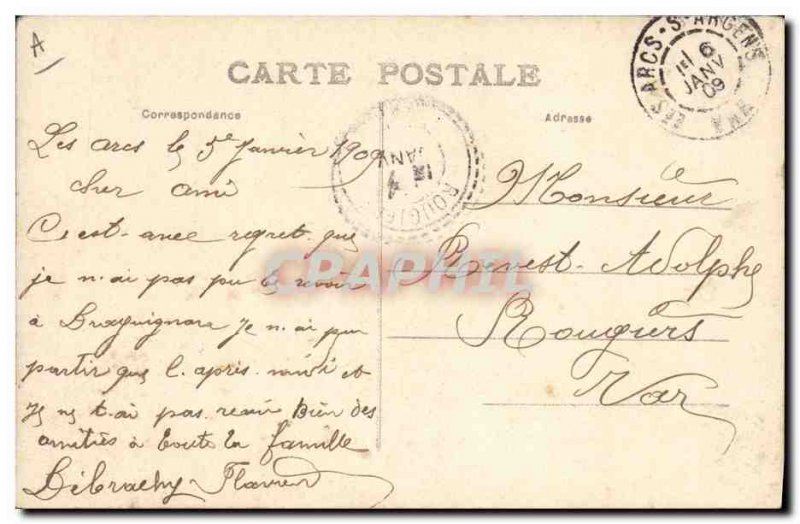 A
CARTE POSTALE
Correspondance
Adresse
LES ARCS-S-ARGENS
6
JANV
09
JANV
ROUGIE
Les arcs le 5e Janvier 1909
cher ami
C'est avec regret que
je n.ai pas pu te revoir
à Draguignan Je n.ai pu
partir que l.apres midi et
Je ne t.ai pas revu Bien des
amitiés à toute la famille
Flavien
Monsieur
Revest Adolphe
Rougiers
Var
CPAPHIL